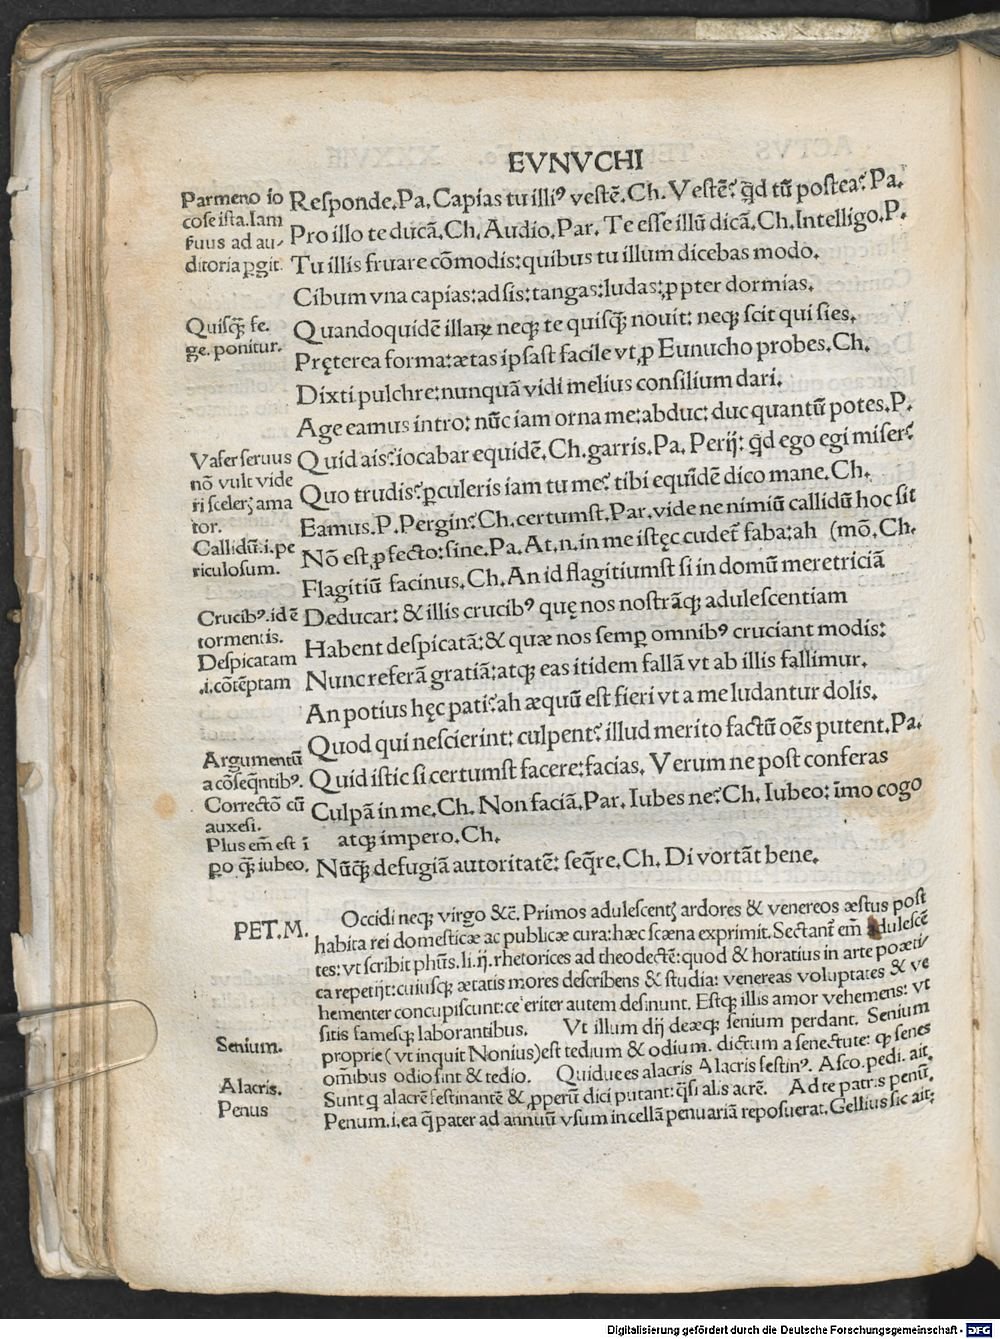 EVNVCHI
Parmeno io
cose ista.Iam
ẜuus ad au-
ditoria ꝑgit.
Quisq̃ȝ fe.
ge. ponitur.
Vafer seruus
nõ vult vide
ri sceleꝝ ama
tor.
Callidũ.i.pe
riculosum.
Crucibꝰ.idẽ
tormentis.
Despicatam
.i.cõtẽptam
Argumentũ
a cõseq̃ntibꝰ.
Correctõ cũ
auxesi.
Plus em̃ est ĩ
ꝑo q̃ȝ iubeo.
Responde.Pa.Capias tu illiꝰ vestẽ.Ch.Vestẽ? q̃d tũ postea?.Pa.
Pro illo te ducã.Ch.Audio.Par.Te esse illũ dicã.Ch.Intelligo.P.
Tu illis fruare cõmodis:quibus tu illum dicebas modo.
Cibum vna capias:adsis:tangas:ludas:ꝓpter dormias.
Quandoquidẽ illaꝝ neqȝ te quisq̃ȝ nouit: neqȝ scit qui sies.
Pręterea forma:ætas ipsast facile vt ꝓ Eunucho probes.Ch.
Dixti pulchre:nunquã vidi melius consilium dari.
Age eamus intro: nũc iam orna me:abduc: duc quantũ potes.P.
Quid ais?iocabar equidẽ.Ch.garris.Pa.Perij: q̃d ego egi miser?
Quo trudis?ꝑculeris iam tu me? tibi equidẽ dico mane.Ch.
Eamus.P.Pergin?Ch.certumst.Par.vide ne nimiũ callidũ hoc sit
Nõ est ꝓfecto:sine.Pa.At.n.in me istęc cudet̃ faba:ah (mõ.Ch.
Flagitiũ facinus.Ch.An id flagitiumst si in domũ meretriciã
Deducar: & illis crucibꝰ quę nos nostrãqȝ adulescentiam
Habent despicatã:& quæ nos semꝑ omnibꝰ cruciant modis:
Nunc referã gratiã:atqȝ eas itidem fallã vt ab illis fallimur.
An potius hęc pati?ah æquũ est fieri vt a me ludantur dolis.
Quod qui nescierint: culpent? illud merito factũ oẽs putent.Pa.
Quid istic si certumst facere:facias. Verum ne post conferas
Culpã in me.Ch.Non faciã.Par.Iubes ne?Ch.Iubeo: ĩmo cogo
atqȝ impero.Ch.
Nũq̃ȝ defugiã autoritatẽ: seq̃re.Ch.Di vortãt bene.
PET.M.
Occidi neqȝ virgo &c̃. Primos adulescentꝝ ardores & venereos æstus post
habita rei domesticæ ac publicæ cura:hæc scæna exprimit.Sectant̃ em̃ adulescẽ
tes:vt scribit phũs.li.ij.rhetorices ad theodectẽ:quod & horatius in arte poæti/
ca repetijt:cuiusqȝ ætatis mores describens & studia: venereas voluptates & ve
hementer concupiscunt:celeriter autem desinunt. Estqȝ illis amor vehemens: vt
sitis famesqȝ laborantibus. Vt illum dij deæqȝ senium perdant. Senium
proprie(vt inquit Nonius)est tedium & odium. dictum a senectute: qȝ senes
om̃ibus odio sint & tedio. Quidue es alacris Alacris festinꝰ. Asco.pedi.ait.
Sunt q alacrẽ festinantẽ & ꝓpperũ dici putant:q̃si alis acrẽ. Ad te patris penũ.
Penum.i.ea q̃ pater ad annuũ vsum in cellã penuariã reposuerat.Gellius sic ait:
Senium.
Alacris.
Penus
Digitalisierung gefördert durch die Deutsche Forschungsgemeinschaft - DFG